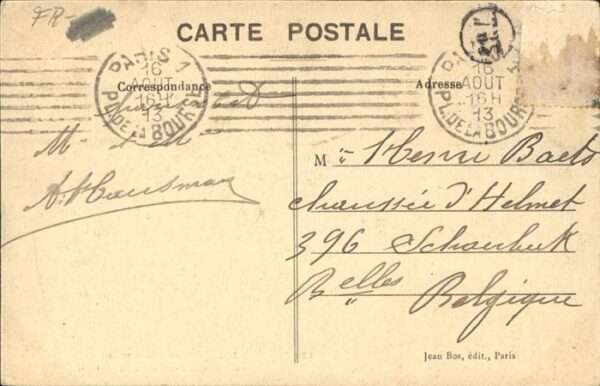 FR-
CARTE POSTALE
PARIS 1
16
AOUT
16H
13
PL. DE LA BOURSE
Correspondance
A. Hausman
PARIS 1
16
AOUT
16H
13
PL. DE LA BOURSE
Adresse
M Henri Baets
chaussée d'Helmet
396 Schaerbeek
Bxelles Belgique
Jean Bos, édit., Paris